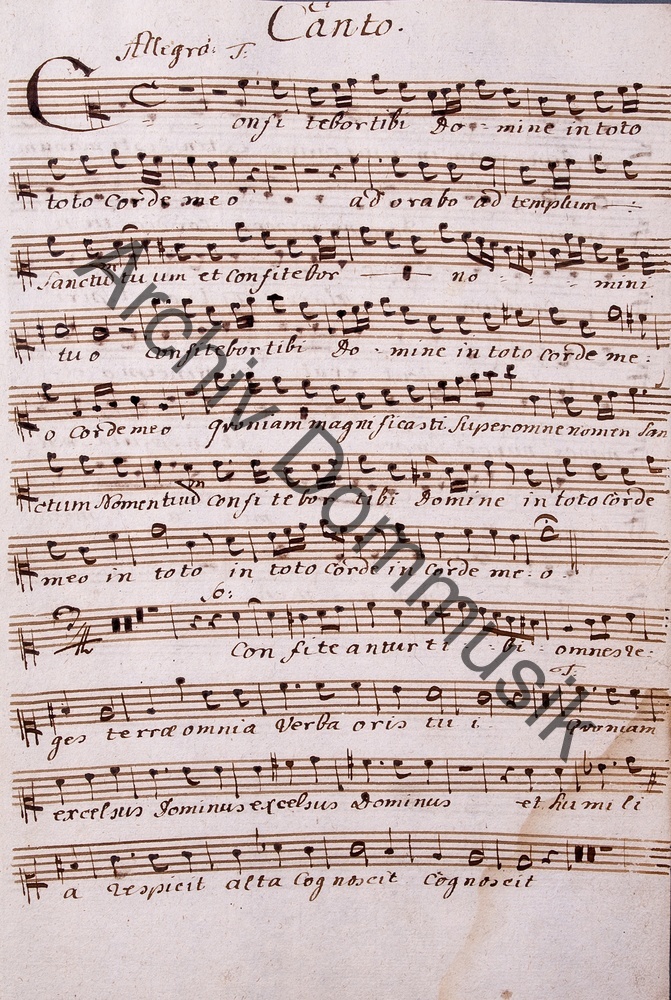 Canto.
Allegro: T.
Confi tebor tibi Do - mine in toto
toto Corde meo ad orabo ad templum
Sanctu tu um et Confitebor no mini
tuo Confitebor tibi Do - mine in toto corde me:
o Corde meo Quoniam magnificasti super omne nomen San
ctum Nomen tuud Confi te bor tibi Domine in toto Corde
meo in toto in toto Corde in Corde me: o
S:
Con fite antur ti - bi omnes re:
T.
ges terræ omnia Verba oris tu i Quoniam
excelsus Dominus excelsus Dominus et humi li
a respicit alta Cognoscit Cognoscit
Archiv Dommusik